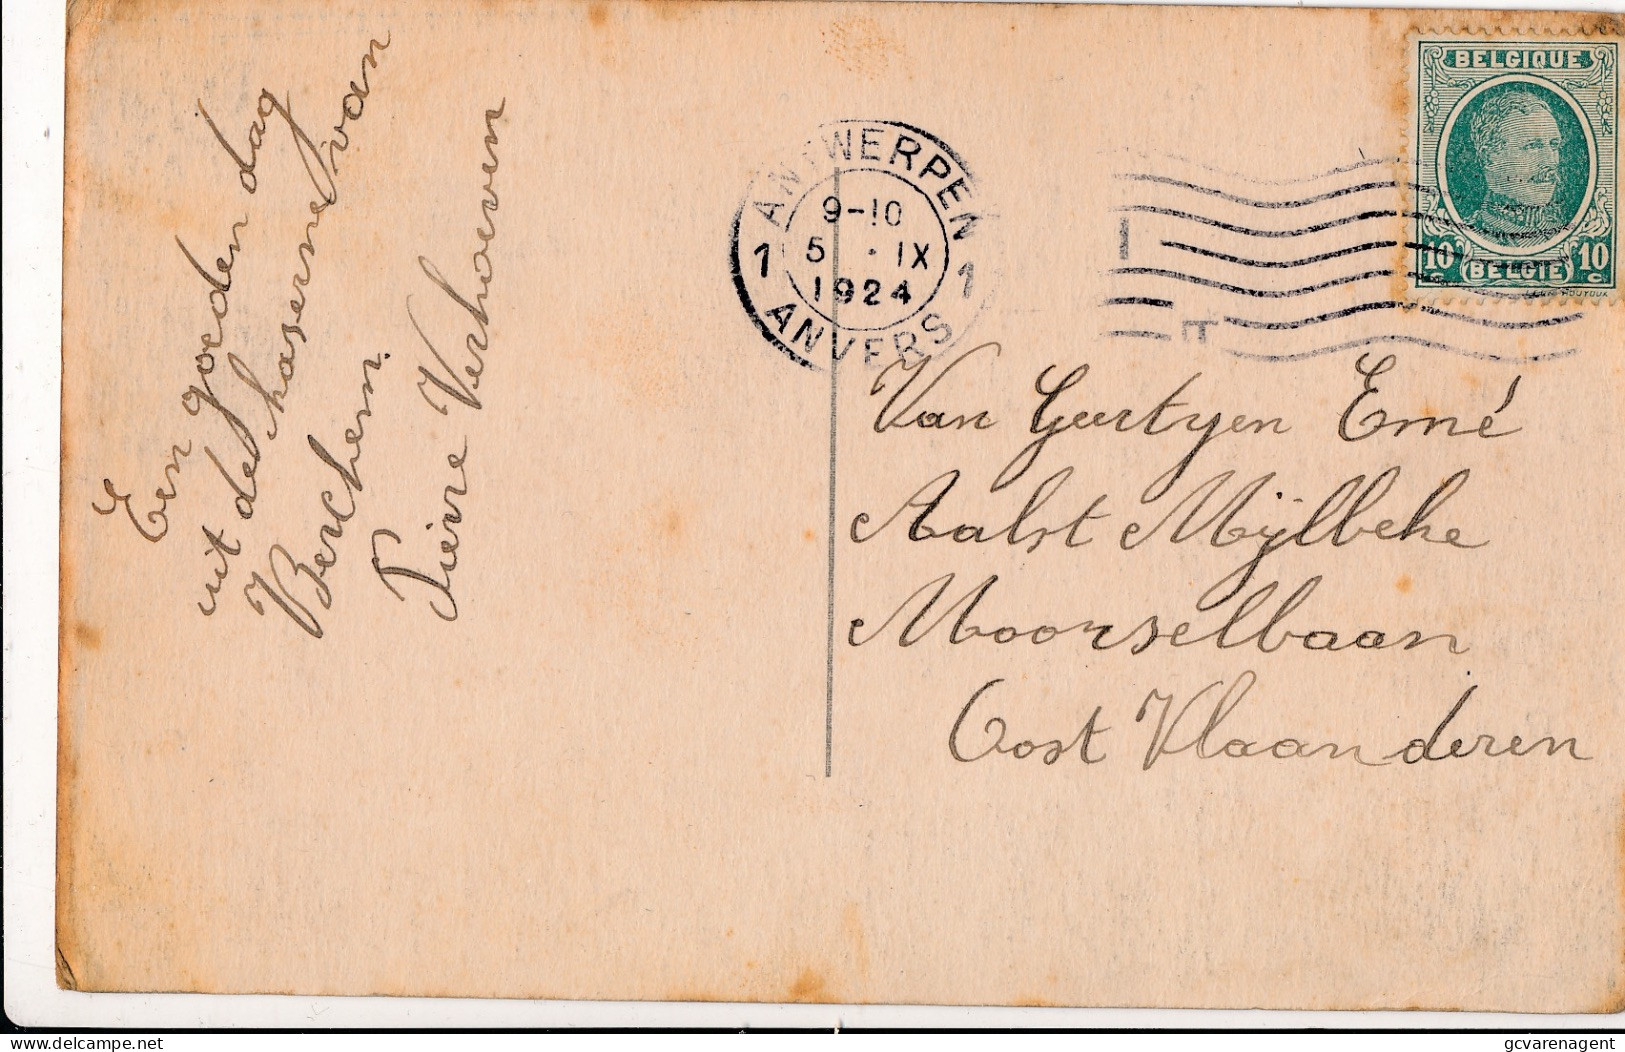 Een goeden dag
uit de kaserne van
Berchem.
Pierre Verhoeven
ANTWERPEN
1 9-10 1
5 · IX
1924
ANVERS
BELGIQUE
10 c BELGIË 10 c
Van Geertyen Erné
Aalst Mijlbeke
Moorselbaan
Oost Vlaanderen
delcampe.net
gcvarenagent